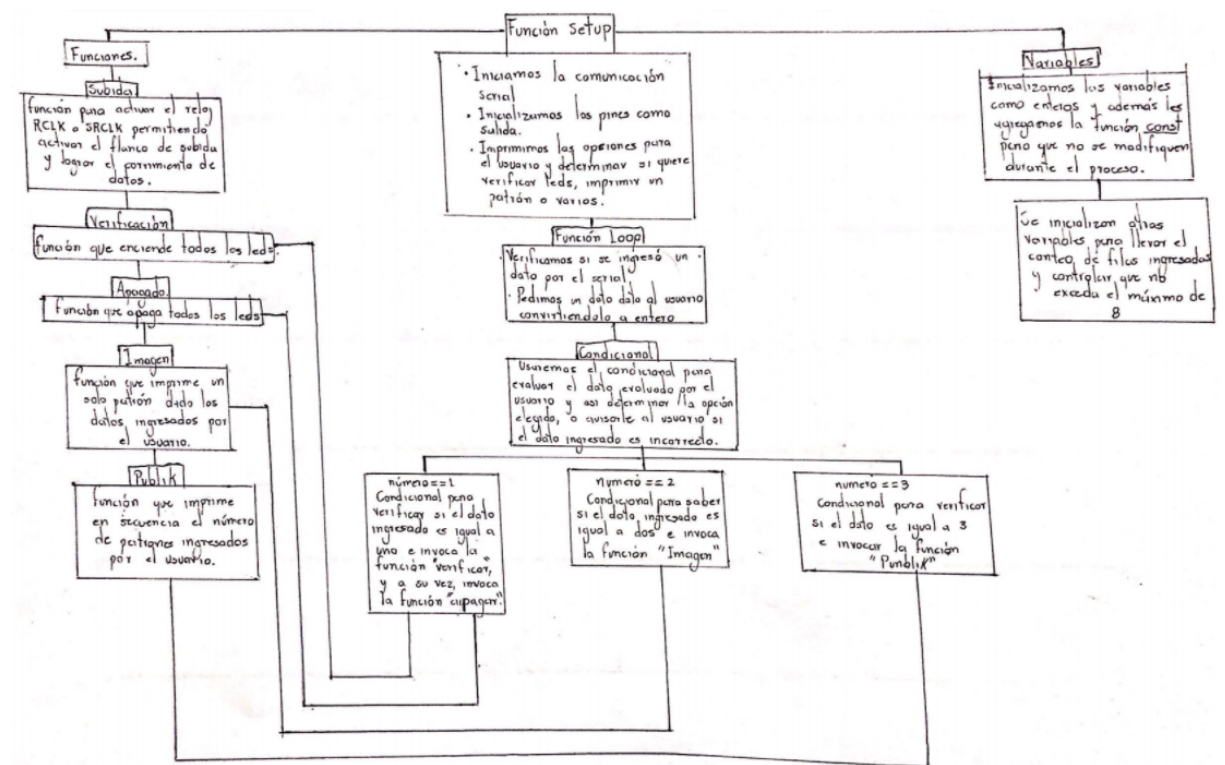 Función Setup
Funciones.
Subida
función para activar el reloj
RCLK o SRCLK permitiendo
activar el flanco de subida
y lograr el corrimiento de
datos.
Verificación
función que enciende todos los leds.
Apagado
Función que apaga todos los leds
Imagen
función que imprime un
solo patrón dado los
datos ingresados por
el usuario.
Publik
función que imprime
en secuencia el número
de patrones ingresados
por el usuario.
• Iniciamos la comunicación
serial
• Inicializamos los pines como
salida.
• Imprimimos las opciones para
el usuario y determinar si quiere
verificar leds, imprimir un
patrón o varios.
Función Loop
• Verificamos si se ingresó un
dato por el serial
• Pedimos un dato dato al usuario
convirtiéndolo a entero
Condicional
Usaremos el condicional para
evaluar el dato evaluado por el
usuario y asi determinar la opción
elegida, o avisarle al usuario si
el dato ingresado es incorrecto.
número==1
Condicional para
verificar si el dato
ingresado es igual a
uno e invoca la
función "verificar",
y a su vez, invoca
la función "apagar".
numero == 2
Condicional para saber
si el dato ingresado es
igual a dos e invoca
la función "Imagen"
numero ==3
Condicional para verificar
si el dato es igual a 3
e invocar la función
"Punblik"
Variables
Inicializamos las variables
como enteras y además les
agregamos la función const
para que no se modifiquen
durante el proceso.
Se inicializan otras
variables para llevar el
conteo de filas ingresadas
y controlar que no
exceda el máximo de
8